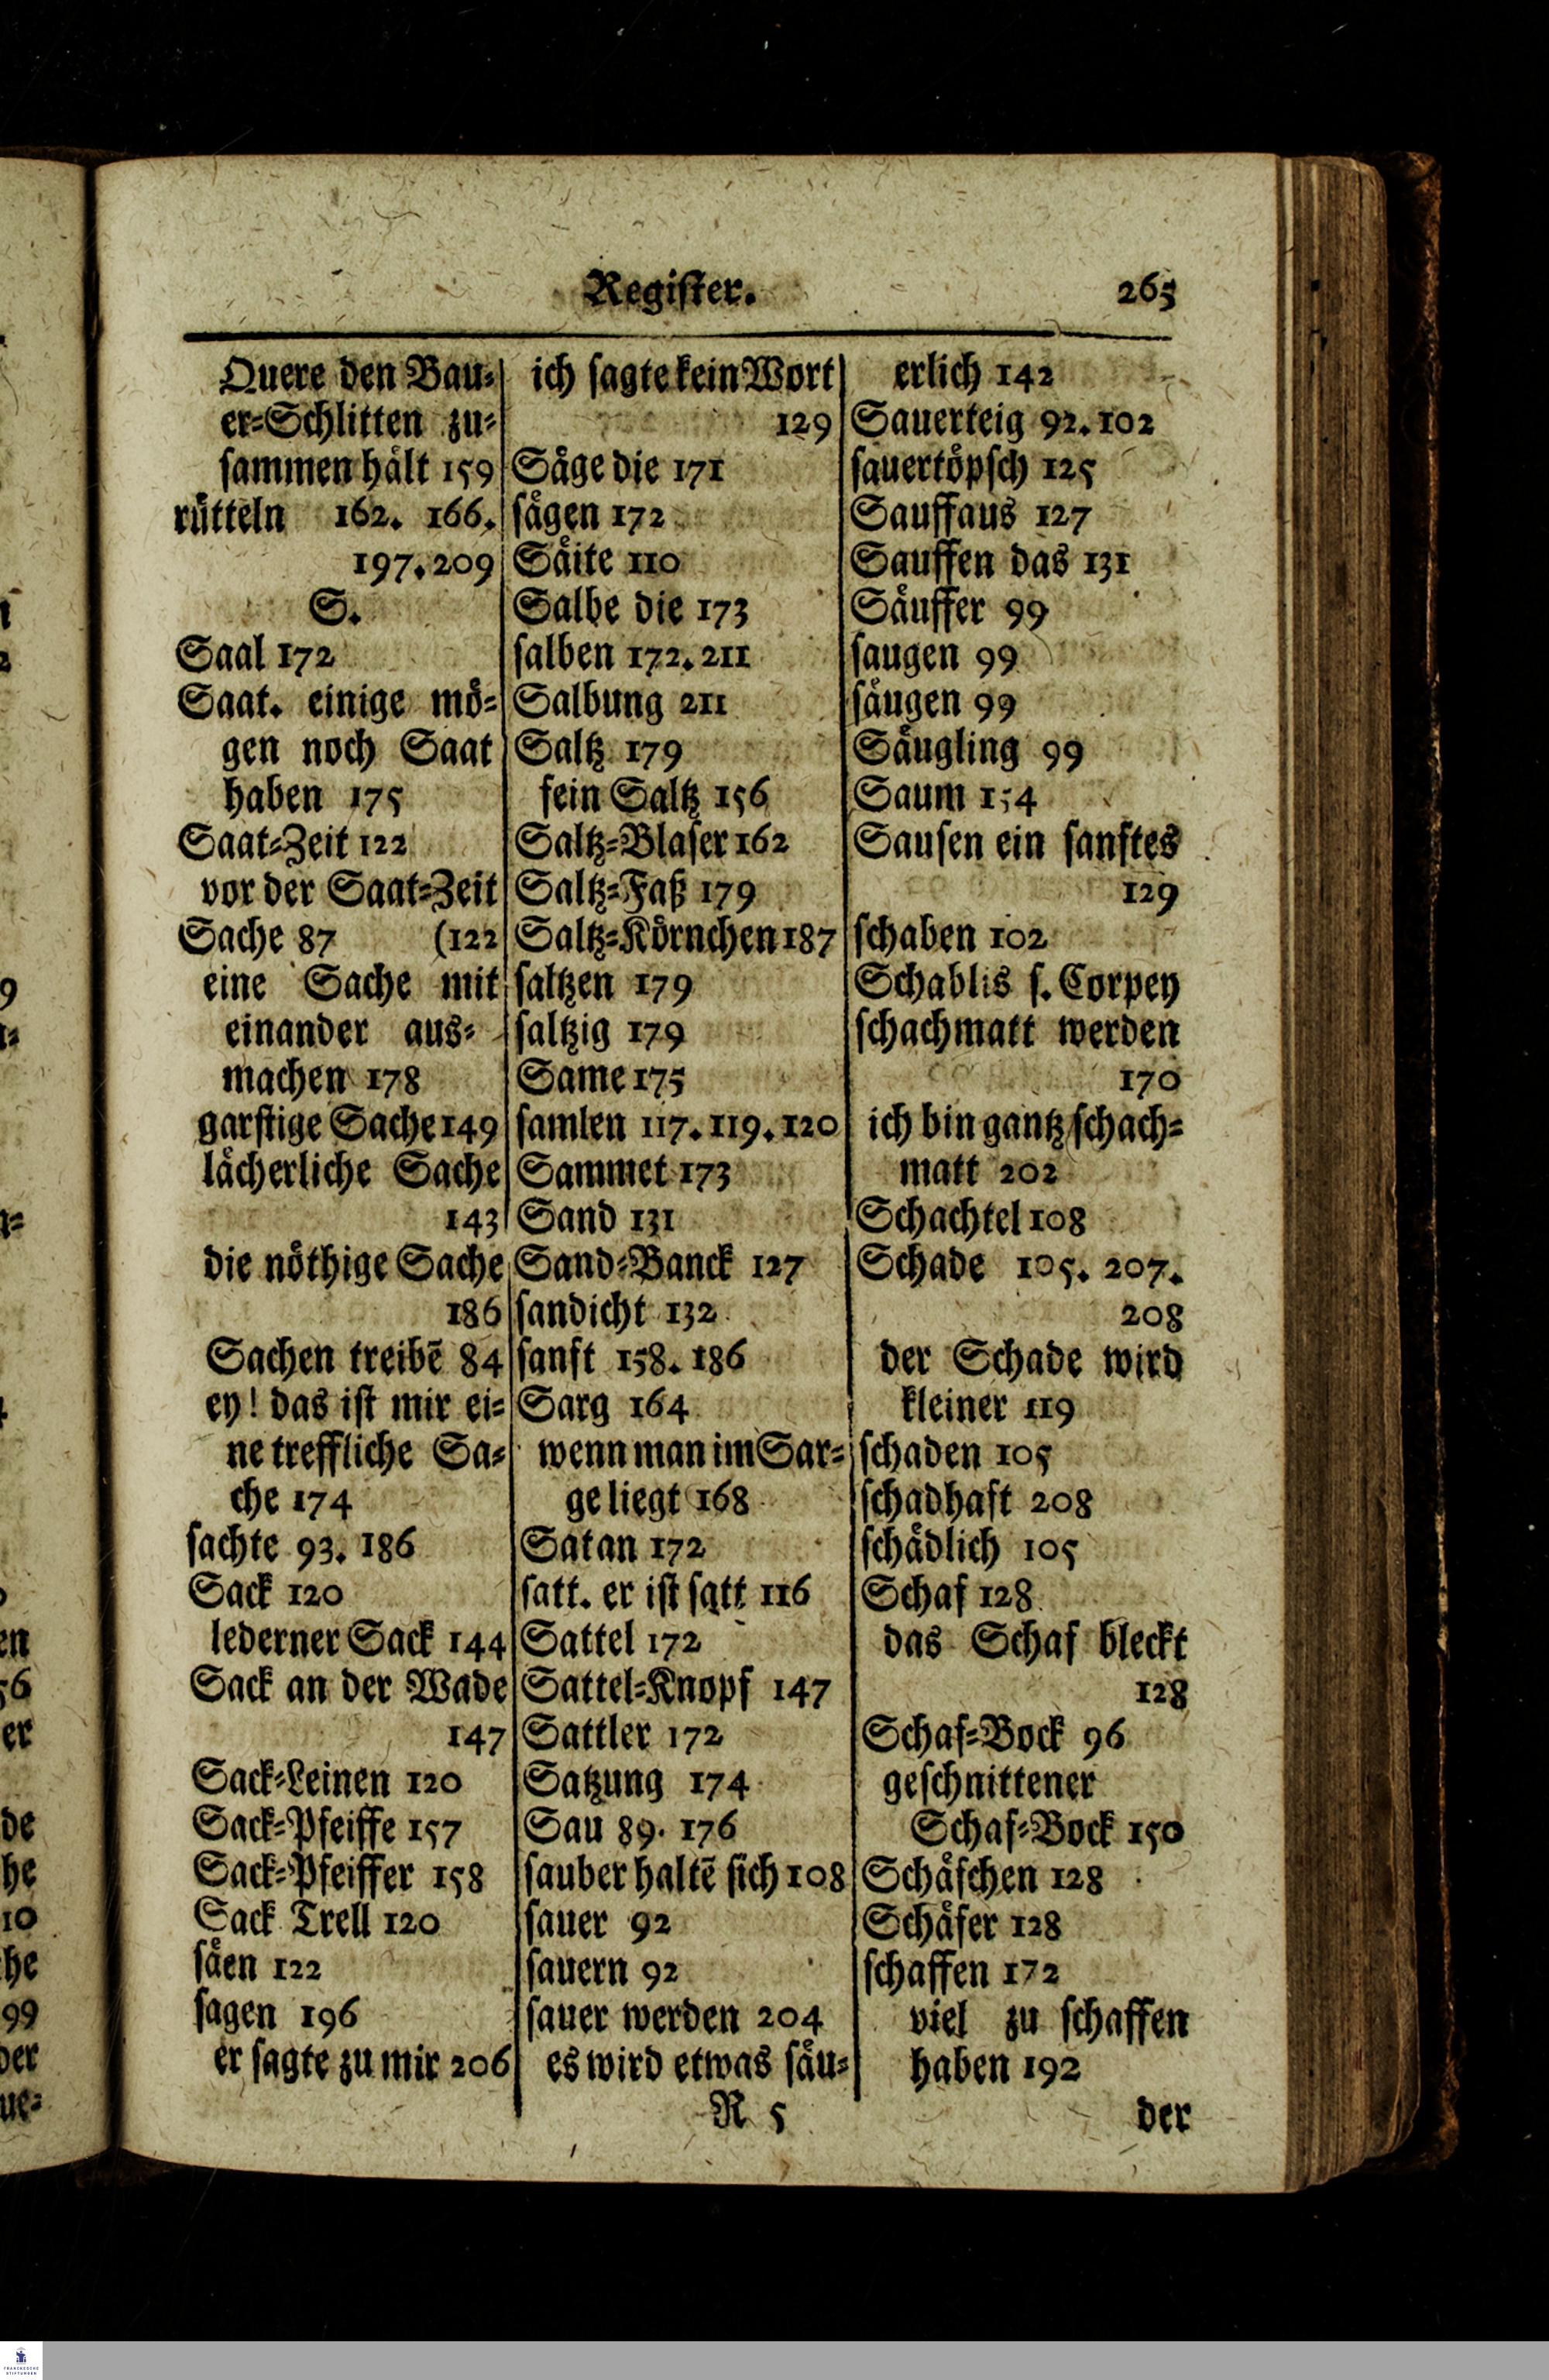 Regiſter. 265
Quere den Bau⸗
er⸗Schlitten zu⸗
ſammen haͤlt 159
ruͤtteln 162. 166.
197. 209
S.
Saal 172
Saat. einige moͤ⸗
gen noch Saat
haben 175
Saat⸗Zeit 122
vor der Saat⸗Zeit
Sache 87 (122
eine Sache mit
einander aus⸗
machen 178
garſtige Sache 149
laͤcherliche Sache
143
die noͤthige Sache
186
Sachen treibē 84
ey! das iſt mir ei⸗
ne treffliche Sa⸗
che 174
ſachte 93. 186
Sack 120
lederner Sack 144
Sack an der Wade
147
Sack⸗Leinen 120
Sack⸗Pfeiffe 157
Sack⸗Pfeiffer 158
Sack Trell 120
ſaͤen 122
ſagen 196
er ſagte zu mir 206
ich ſagte kein Wort
129
Saͤge die 171
ſaͤgen 172
Saͤite 110
Salbe die 173
ſalben 172. 211
Salbung 211
Saltz 179
fein Saltz 156
Saltz⸗Blaſer 162
Saltz⸗Faß 179
Saltz⸗Koͤrnchen 187
ſaltzen 179
ſaltzig 179
Same 175
ſamlen 117. 119. 120
Sammet 173
Sand 131
Sand⸗Banck 127
ſandicht 132
ſanft 158. 186
Sarg 164
wenn man im Sar⸗
ge liegt 168
Satan 172
ſatt. er iſt ſatt 116
Sattel 172
Sattel⸗Knopf 147
Sattler 172
Satzung 174
Sau 89. 176
ſauber haltē ſich 108
ſauer 92
ſauern 92
ſauer werden 204
es wird etwas ſaͤu⸗
erlich 142
Sauerteig 92. 102
ſauertoͤpſch 125
Sauffaus 127
Sauffen das 131
Saͤuffer 99
ſaugen 99
ſaͤugen 99
Saͤugling 99
Saum 154
Sauſen ein ſanftes
129
ſchaben 102
Schablis ſ. Corpey
ſchachmatt werden
170
ich bin gantz ſchach⸗
matt 202
Schachtel 108
Schade 105. 207.
208
der Schade wird
kleiner 119
ſchaden 105
ſchadhaft 208
ſchaͤdlich 105
Schaf 128
das Schaf bleckt
128
Schaf⸗Bock 96
geſchnittener
Schaf⸗Bock 150
Schaͤfchen 128
Schaͤfer 128
ſchaffen 172
viel zu ſchaffen
haben 192
R 5 der
FRANCKESCHE
STIFTUNGEN